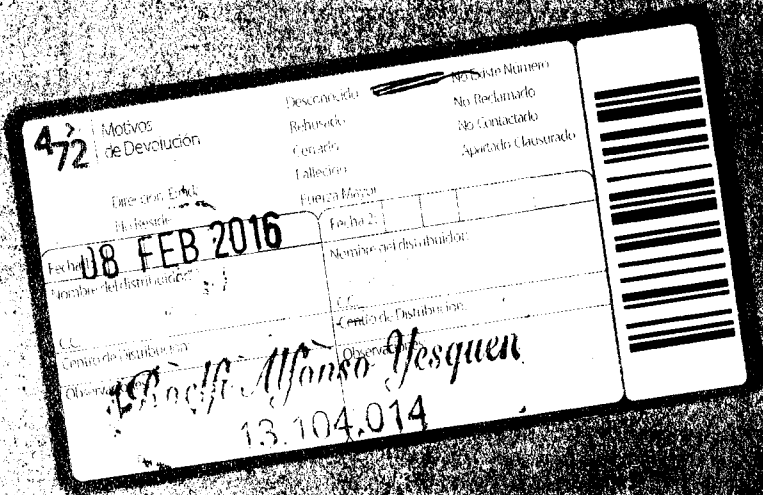 472
Motivos
de Devolución
Desconocido
Rehusado
Cerrado
Fallecido
Fuerza Mayor
No Existe Número
No Reclamado
No Contactado
Apartado Clausurado
Dirección Errada
No Reside
Fecha 1:
08 FEB 2016
Fecha 2:
Nombre del distribuidor:
Nombre del distribuidor:
C.C.
C.C.
Centro de Distribución:
Centro de Distribución:
Observaciones:
Observaciones:
Alfonso Yesquen
13.104.014